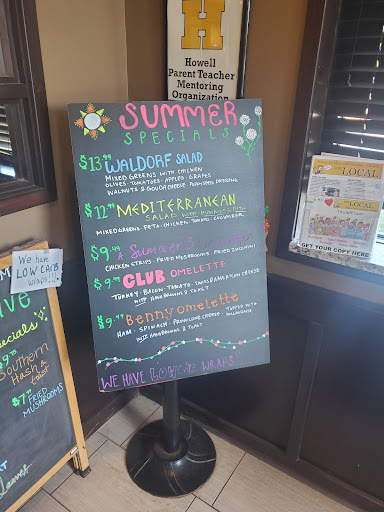 H
Howell
Parent Teacher
Mentoring
Organization
SUMMER
SPECIALS
$13.99 WALDORF SALAD
MIXED GREENS WITH CHICKEN
OLIVES · TOMATOES · APPLES · GRAPES
WALNUTS & GOUDA CHEESE · POPPYSEED DRESSING
$12.99 MEDITERRANEAN
SALAD WITH HUMMUS & PITA
MIXED GREENS · FETA · CHICKEN · TOMATO · CUCUMBER
$9.99 A Summer's
CHICKEN STRIPS · FRIED MUSHROOMS · FRIED ZUCCHINI
$9.99 CLUB OMELETTE
TURKEY · BACON · TOMATO · SWISS & AMERICAN CHEESE
WITH HASHBROWNS & TOAST
$9.99 Benny omelette
HAM · SPINACH · PROVOLONE CHEESE · TOPPED WITH
HOLLANDAISE
WITH HASHBROWNS & TOAST
WE HAVE LOW CARB WRAPS!
We have
LOW CARB
wraps!!
Specials
Southern
Hash &
toast
$7.99 FRIED
MUSHROOMS
LOCAL
LOCAL
GET YOUR COPY HERE